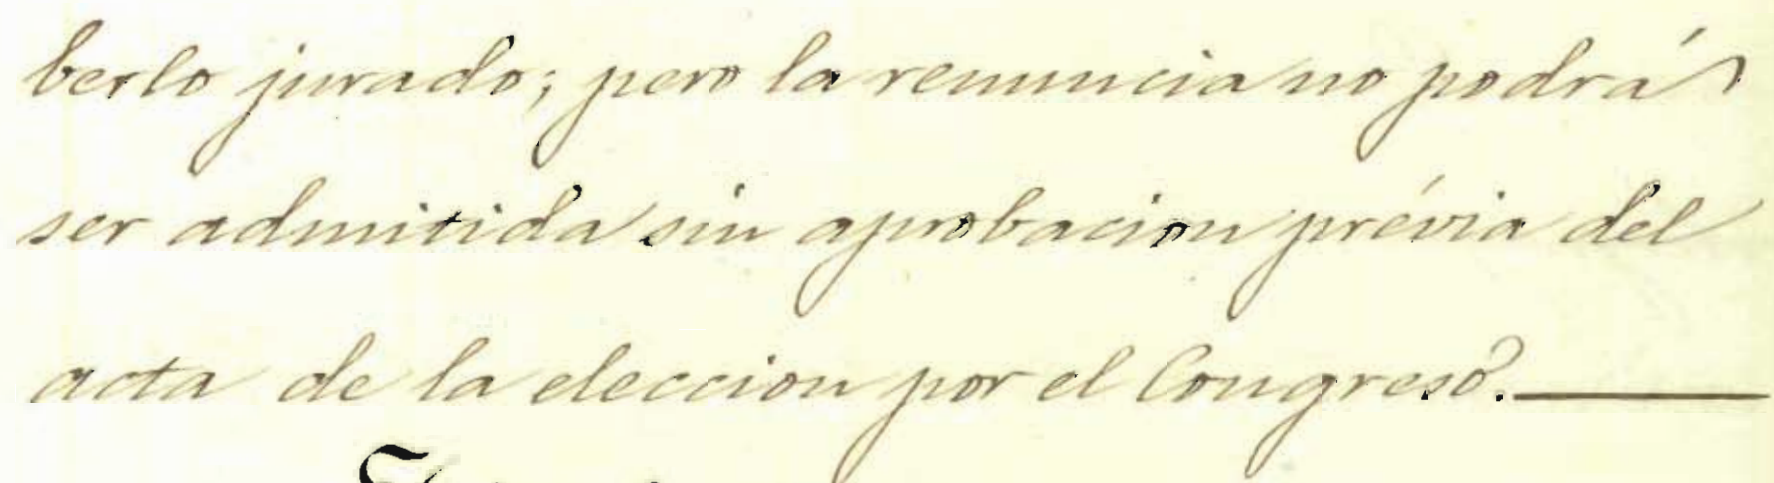 berlo jurado; pero la renuncia no podrá
ser admitida sin aprobacion prévia del
acta de la eleccion por el Congreso.